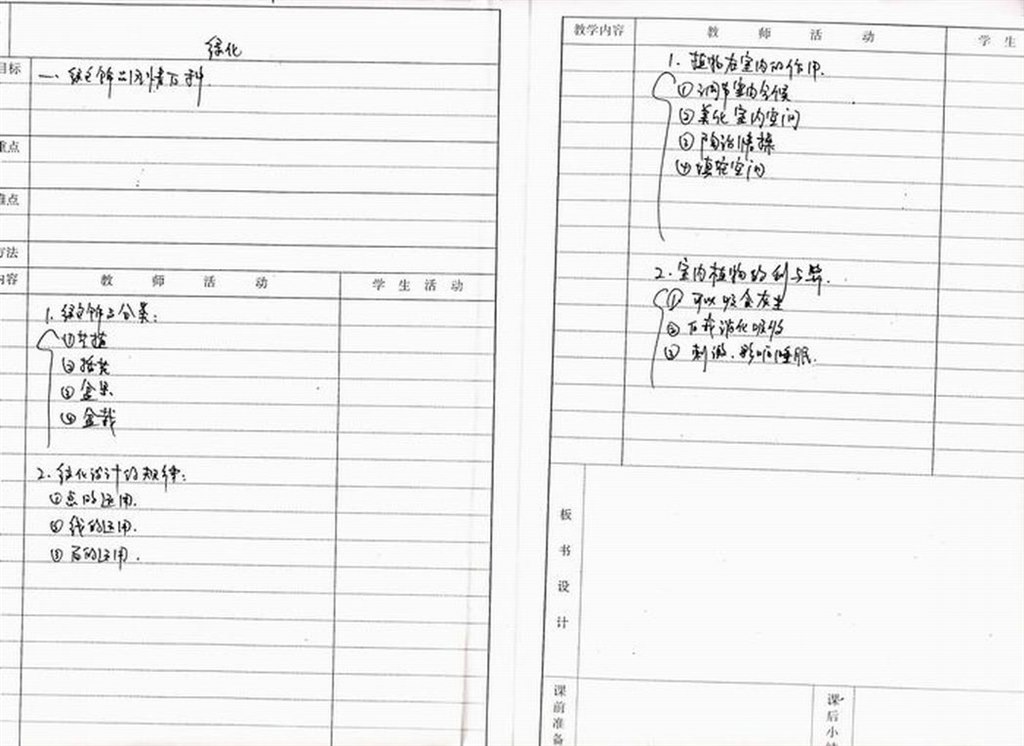 绿化
目标
一、绿色饰品风情万种
重点
难点
方法
内容
教师活动
学生活动
1. 绿色饰品分类:
①花插
②插花
③盆景
④盆栽
2. 绿化设计的规律:
①点的运用.
②线的运用.
③面的运用.
教学内容
教师活动
学生
1. 植物在室内的作用.
①调节室内气候
②美化室内空间
③陶冶情操
④填充空间
2. 室内植物的利与弊.
① 可以吸
②
③ 刺激.影响睡眠.
板书设计
课前准备
课后小